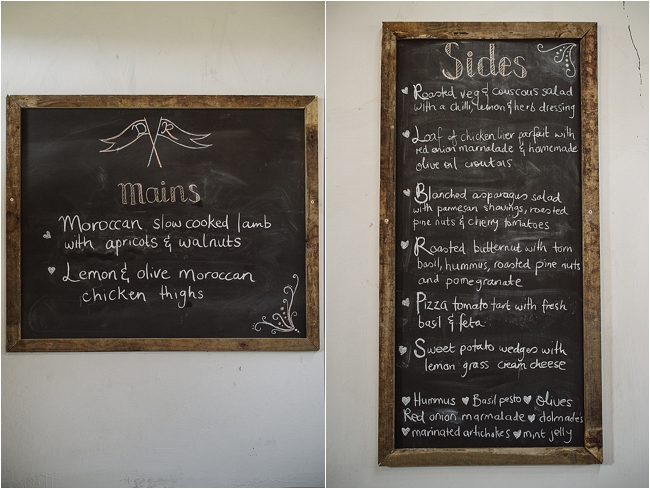 D R
mains
Moroccan slow cooked lamb
with apricots & walnuts
Lemon & olive moroccan
chicken thighs
Sides
Roasted veg & couscous salad
with a chilli, lemon & herb dressing
Loaf of chicken liver parfait with
red onion marmalade & homemade
olive oil croutons
Blanched asparagus salad
with parmesan shavings, roasted
pine nuts & cherry tomatoes
Roasted butternut with torn
basil, hummus, roasted pine nuts
and pomegranate
Pizza tomato tart with fresh
basil & feta
Sweet potato wedges with
lemon grass cream cheese
Hummus ♥ Basil pesto ♥ olives
Red onion marmalade ♥ dolmades
marinated artichokes ♥ mint jelly